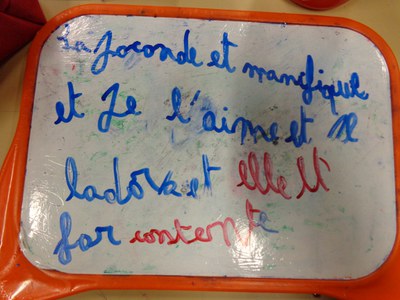 La Joconde et mangifique
et Je l'aime et Je
ladore et elle et
for contente